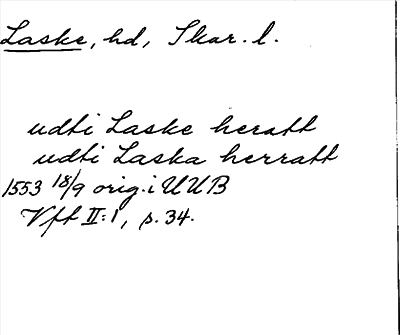 Laske, hd, Skar. l.
udti Laske heratt
udti Laska herratt
1553 18/9 orig. i UUB
Vff II:1, s. 34.